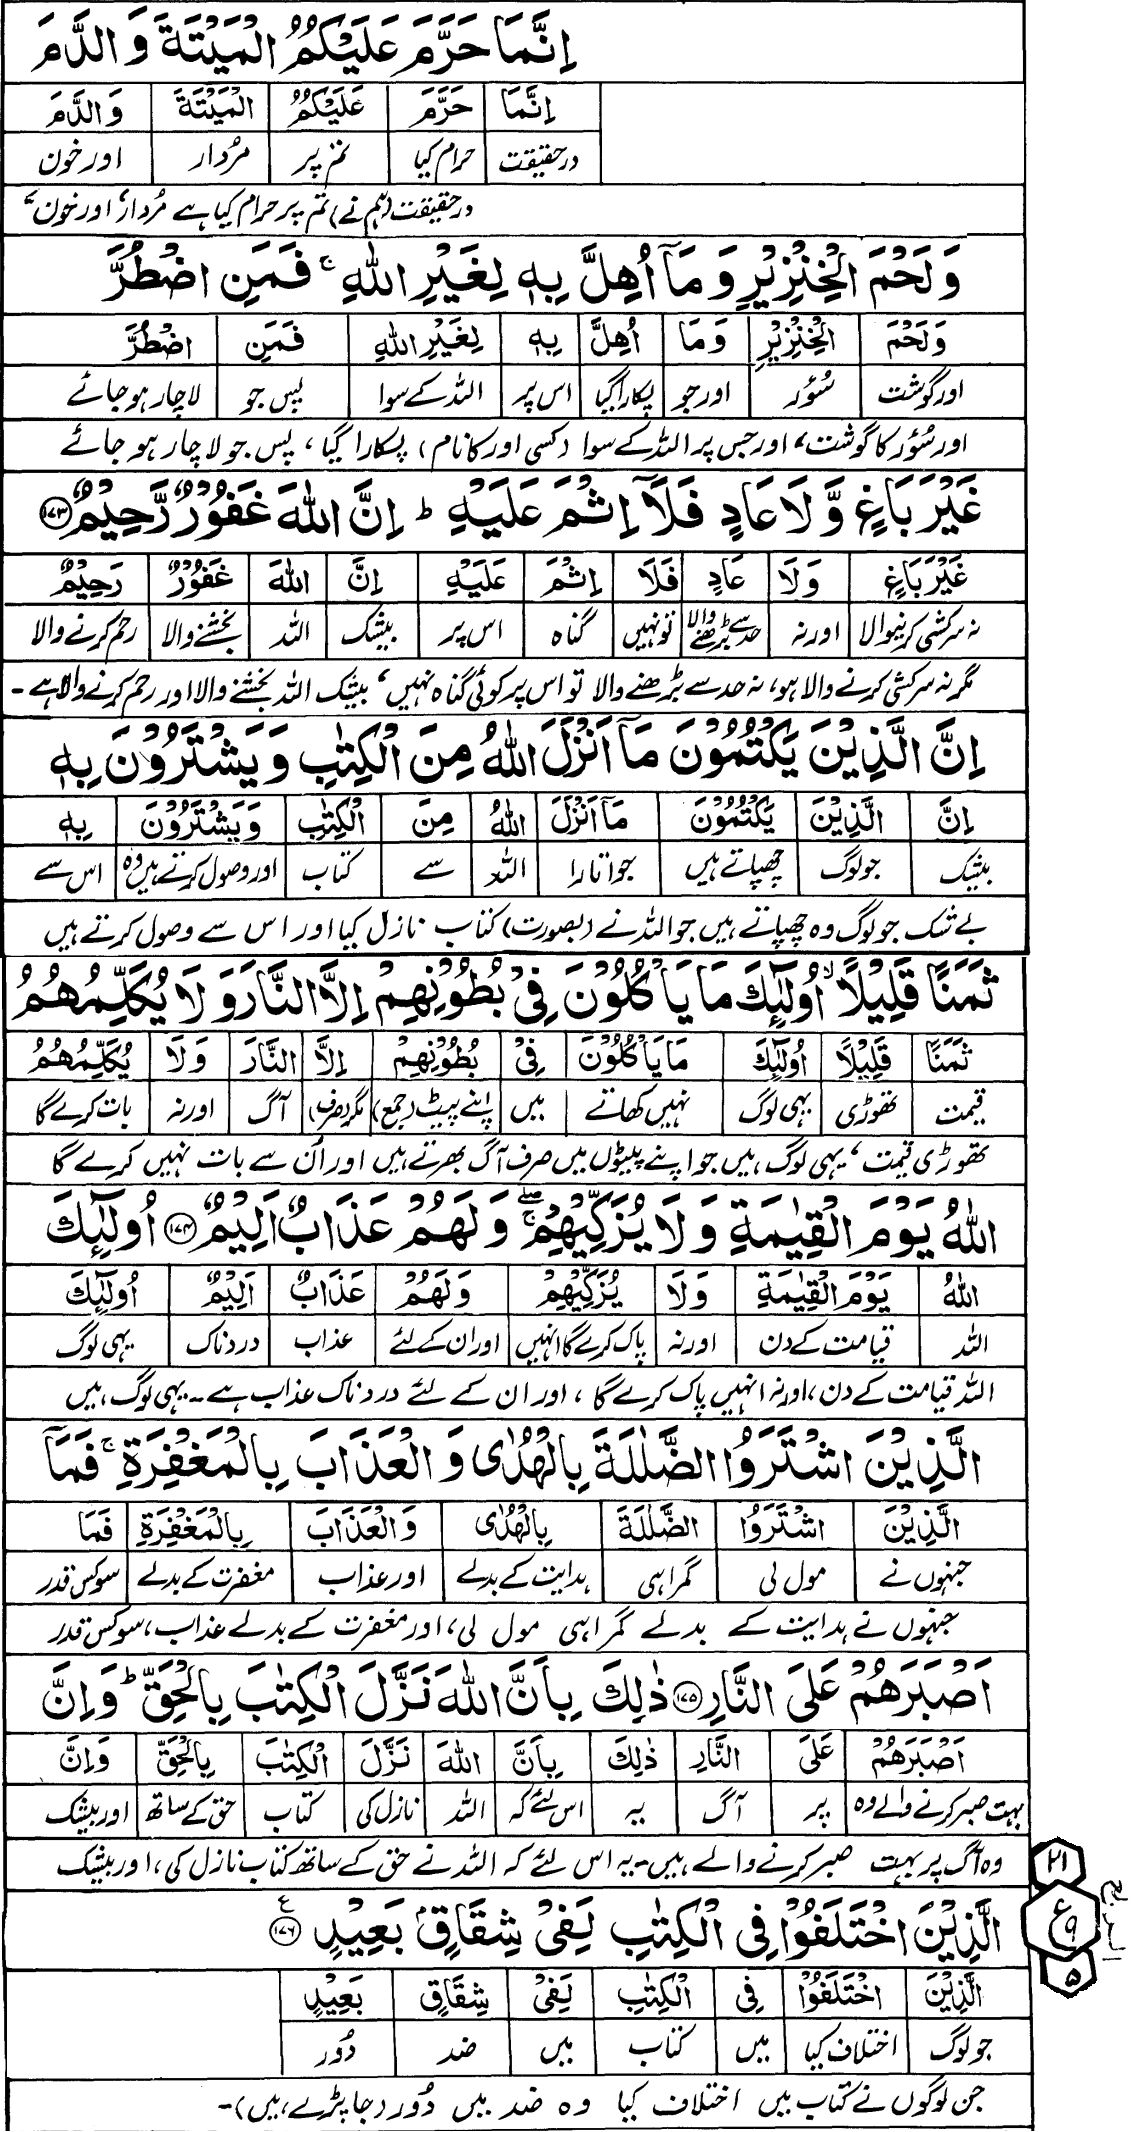 اِنَّمَا حَرَّمَ عَلَيْكُمُ الْمَيْتَةَ وَ الدَّمَ
اِنَّمَا حَرَّمَ عَلَيْكُمُ الْمَيْتَةَ وَالدَّمَ
درحقیقت حرام کیا تم پر مُردار اور خون
درحقیقت (ہم نے) تم پر حرام کیا ہے مُردار، اور خون،
وَ لَحْمَ الْخِنْزِيْرِ وَ مَآ اُهِلَّ بِهٖ لِغَيْرِ اللّٰهِ ۚ فَمَنِ اضْطُرَّ
وَلَحْمَ الْخِنْزِيْرِ وَمَا اُهِلَّ بِهٖ لِغَيْرِ اللّٰهِ فَمَنِ اضْطُرَّ
اور گوشت سُؤر اور جو پکارا گیا اس پر اللہ کے سوا پس جو لاچار ہو جائے
اور سُؤر کا گوشت، اور جس پر اللہ کے سوا (کسی اور کا نام) پکارا گیا، پس جو لاچار ہو جائے
غَيْرَ بَاغٍ وَّ لَا عَادٍ فَلَآ اِثْمَ عَلَيْهِ ؕ اِنَّ اللّٰهَ غَفُوْرٌ رَّحِيْمٌ ۝۱۷۳
غَيْرَ بَاغٍ وَلَا عَادٍ فَلَا اِثْمَ عَلَيْهِ اِنَّ اللّٰهَ غَفُوْرٌ رَحِيْمٌ
نہ سرکشی کرنیوالا اور نہ حد سے بڑھنے والا تو نہیں گناہ اس پر بیشک اللہ بخشنے والا رحم کرنے والا
مگر نہ سرکشی کرنے والا ہو، نہ حد سے بڑھنے والا تو اس پر کوئی گناہ نہیں، بیشک اللہ بخشنے والا اور رحم کرنے والا ہے۔
اِنَّ الَّذِيْنَ يَكْتُمُوْنَ مَآ اَنْزَلَ اللّٰهُ مِنَ الْكِتٰبِ وَ يَشْتَرُوْنَ بِهٖ
اِنَّ الَّذِيْنَ يَكْتُمُوْنَ مَآ اَنْزَلَ اللّٰهُ مِنَ الْكِتٰبِ وَيَشْتَرُوْنَ بِهٖ
بیشک جو لوگ چھپاتے ہیں جو اتارا اللہ سے کتاب اور وصول کرتے ہیں وہ اس سے
بے شک جو لوگ وہ چھپاتے ہیں جو اللہ نے (بصورت) کتاب نازل کیا اور اس سے وصول کرتے ہیں
ثَمَنًا قَلِيْلًا ۙ اُولٰٓئِكَ مَا يَاْكُلُوْنَ فِيْ بُطُوْنِهِمْ اِلَّا النَّارَ وَ لَا يُكَلِّمُهُمُ
ثَمَنًا قَلِيْلًا اُولٰٓئِكَ مَا يَاْكُلُوْنَ فِيْ بُطُوْنِهِمْ اِلَّا النَّارَ وَلَا يُكَلِّمُهُمُ
قیمت تھوڑی یہی لوگ نہیں کھاتے میں اپنے پیٹ (جمع) مگر (صرف) آگ اور نہ بات کرے گا
تھوڑی قیمت، یہی لوگ ہیں جو اپنے پیٹوں میں صرف آگ بھرتے ہیں اور اُن سے بات نہیں کرے گا
اللّٰهُ يَوْمَ الْقِيٰمَةِ وَ لَا يُزَكِّيْهِمْ ۖۚ وَ لَهُمْ عَذَابٌ اَلِيْمٌ ۝۱۷۴ اُولٰٓئِكَ
اللّٰهُ يَوْمَ الْقِيٰمَةِ وَلَا يُزَكِّيْهِمْ وَلَهُمْ عَذَابٌ اَلِيْمٌ اُولٰٓئِكَ
اللہ قیامت کے دن اور نہ پاک کرے گا انہیں اور ان کے لئے عذاب دردناک یہی لوگ
اللہ قیامت کے دن، اور نہ انہیں پاک کرے گا، اور ان کے لئے دردناک عذاب ہے۔ یہی لوگ ہیں
الَّذِيْنَ اشْتَرَوُا الضَّلٰلَةَ بِالْهُدٰى وَ الْعَذَابَ بِالْمَغْفِرَةِ ۚ فَمَآ
الَّذِيْنَ اشْتَرَوُا الضَّلٰلَةَ بِالْهُدٰى وَالْعَذَابَ بِالْمَغْفِرَةِ فَمَا
جنہوں نے مول لی گمراہی ہدایت کے بدلے اور عذاب مغفرت کے بدلے سو کس قدر
جنہوں نے ہدایت کے بدلے گمراہی مول لی، اور مغفرت کے بدلے عذاب، سو کس قدر
اَصْبَرَهُمْ عَلَى النَّارِ ۝۱۷۵ ذٰلِكَ بِاَنَّ اللّٰهَ نَزَّلَ الْكِتٰبَ بِالْحَقِّ ؕ وَ اِنَّ
اَصْبَرَهُمْ عَلَى النَّارِ ذٰلِكَ بِاَنَّ اللّٰهَ نَزَّلَ الْكِتٰبَ بِالْحَقِّ وَاِنَّ
بہت صبر کرنے والے وہ پر آگ یہ اس لئے کہ اللہ نازل کی کتاب حق کے ساتھ اور بیشک
وہ آگ پر بہت صبر کرنے والے ہیں۔ یہ اس لئے کہ اللہ نے حق کے ساتھ کتاب نازل کی، اور بیشک
۲۱
الَّذِيْنَ اخْتَلَفُوْا فِي الْكِتٰبِ لَفِيْ شِقَاقٍۭ بَعِيْدٍ ۝۱۷۶ ع
ع ۹
الربع
۵
الَّذِيْنَ اخْتَلَفُوْا فِي الْكِتٰبِ لَفِيْ شِقَاقٍ بَعِيْدٍ
جو لوگ اختلاف کیا میں کتاب میں ضد دُور
جن لوگوں نے کتاب میں اختلاف کیا وہ ضد میں دُور (جا پڑے ہیں)۔